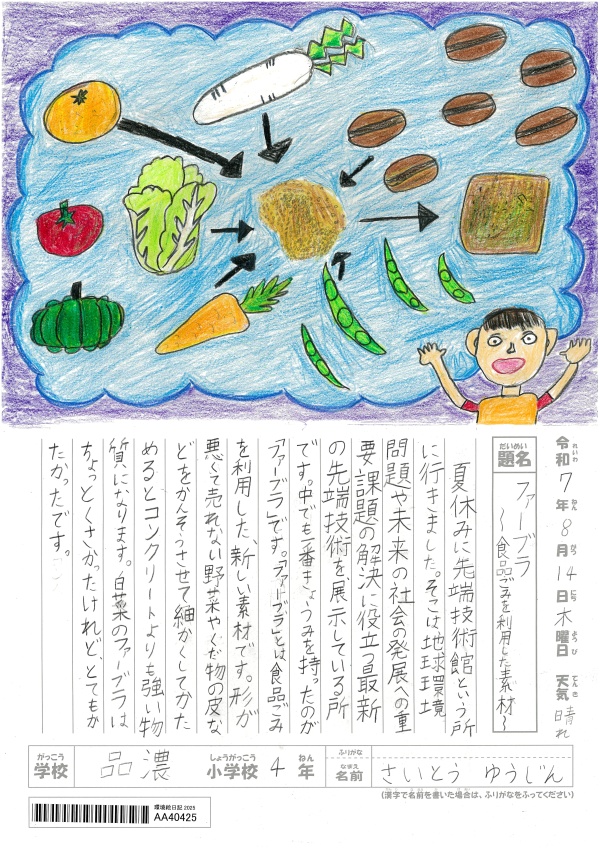 令和7年8月14日木曜日 天気 晴れ
れいわ ねん がつ にち ようび てんき
だいめい
題名
ファーブラ
〜食品ごみを利用した素材〜
夏休みに先端技術館という所
に行きました。そこは地球環境
問題や未来の社会の発展への重
要課題の解決に役立つ最新
の先端技術を、展示している所
です。中でも一番きょうみを持ったのが
「ファーブラ」です。「ファーブラ」とは食品ごみ
を利用した、新しい素材です。形が
悪くて売れない野菜やくだ物の皮な
どをかんそうさせて細かくしてかた
めるとコンクリートよりも強い物
質になります。白菜のファーブラは
ちょっとくさかったけれど、とてもか
たかったです。
がっこう しょうがっこう ねん ふりがな
学校 品濃 小学校 4 年 なまえ 名前 さいとう ゆうじん
(漢字で名前を書いた場合は、ふりがなをふってください)
環境絵日記 2025
AA40425